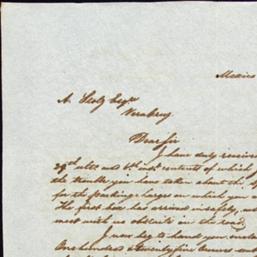 Mexico
A. Stolz Esqr.
Veracruz
Dear Sir
I have duly received
29th ulto and 6th inst. contents of which
the trouble you have taken about the
for the packing
The first box has arrived in safety,
meet with no obstacle in the road,
I now beg to hand you
One hundred & twentyfive